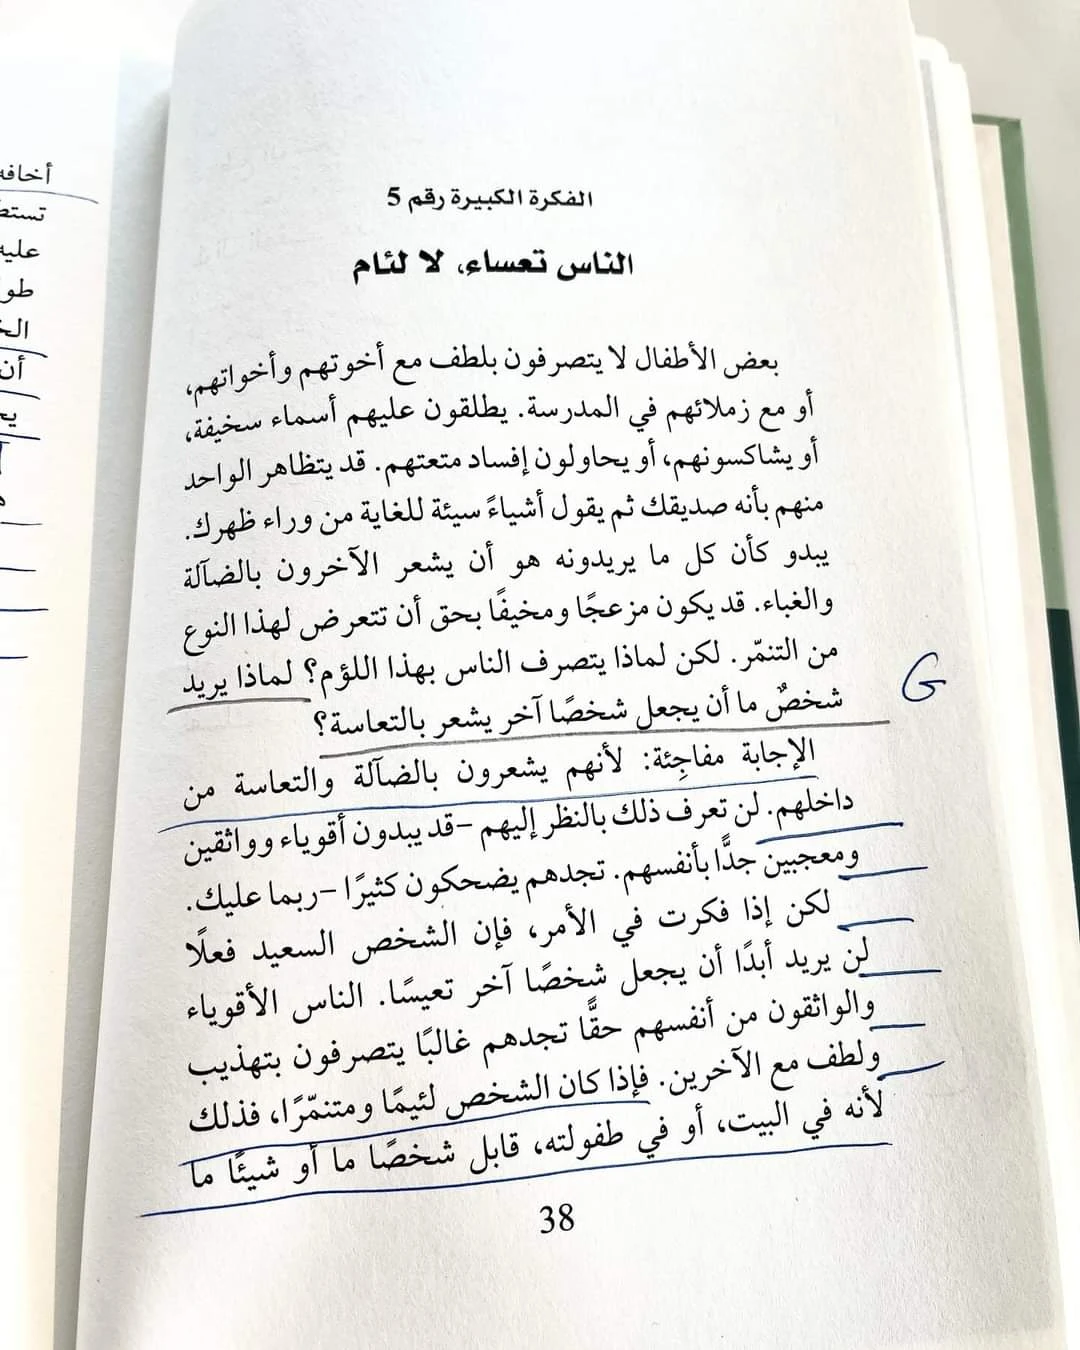 الفكرة الكبيرة رقم 5
الناس تعساء، لا لئام
بعض الأطفال لا يتصرفون بلطف مع أخوتهم وأخواتهم،
أو مع زملائهم في المدرسة. يطلقون عليهم أسماء سخيفة،
أو يشاكسونهم، أو يحاولون إفساد متعتهم. قد يتظاهر الواحد
منهم بأنه صديقك ثم يقول أشياءً سيئة للغاية من وراء ظهرك.
يبدو كأن كل ما يريدونه هو أن يشعر الآخرون بالضآلة
والغباء. قد يكون مزعجًا ومخيفًا بحق أن تتعرض لهذا النوع
من التنمّر. لكن لماذا يتصرف الناس بهذا اللؤم؟ لماذا يريد
شخصٌ ما أن يجعل شخصًا آخر يشعر بالتعاسة؟
الإجابة مفاجِئة: لأنهم يشعرون بالضآلة والتعاسة من
داخلهم. لن تعرف ذلك بالنظر إليهم –قد يبدون أقوياء وواثقين
ومعجبين جدًّا بأنفسهم. تجدهم يضحكون كثيرًا –ربما عليك.
لكن إذا فكرت في الأمر، فإن الشخص السعيد فعلًا
لن يريد أبدًا أن يجعل شخصًا آخر تعيسًا. الناس الأقوياء
والواثقون من أنفسهم حقًّا تجدهم غالبًا يتصرفون بتهذيب
ولطف مع الآخرين. فإذا كان الشخص لئيمًا ومتنمّرًا، فذلك
لأنه في البيت، أو في طفولته، قابل شخصًا ما أو شيئًا ما
38
أخافه
عليه
أن